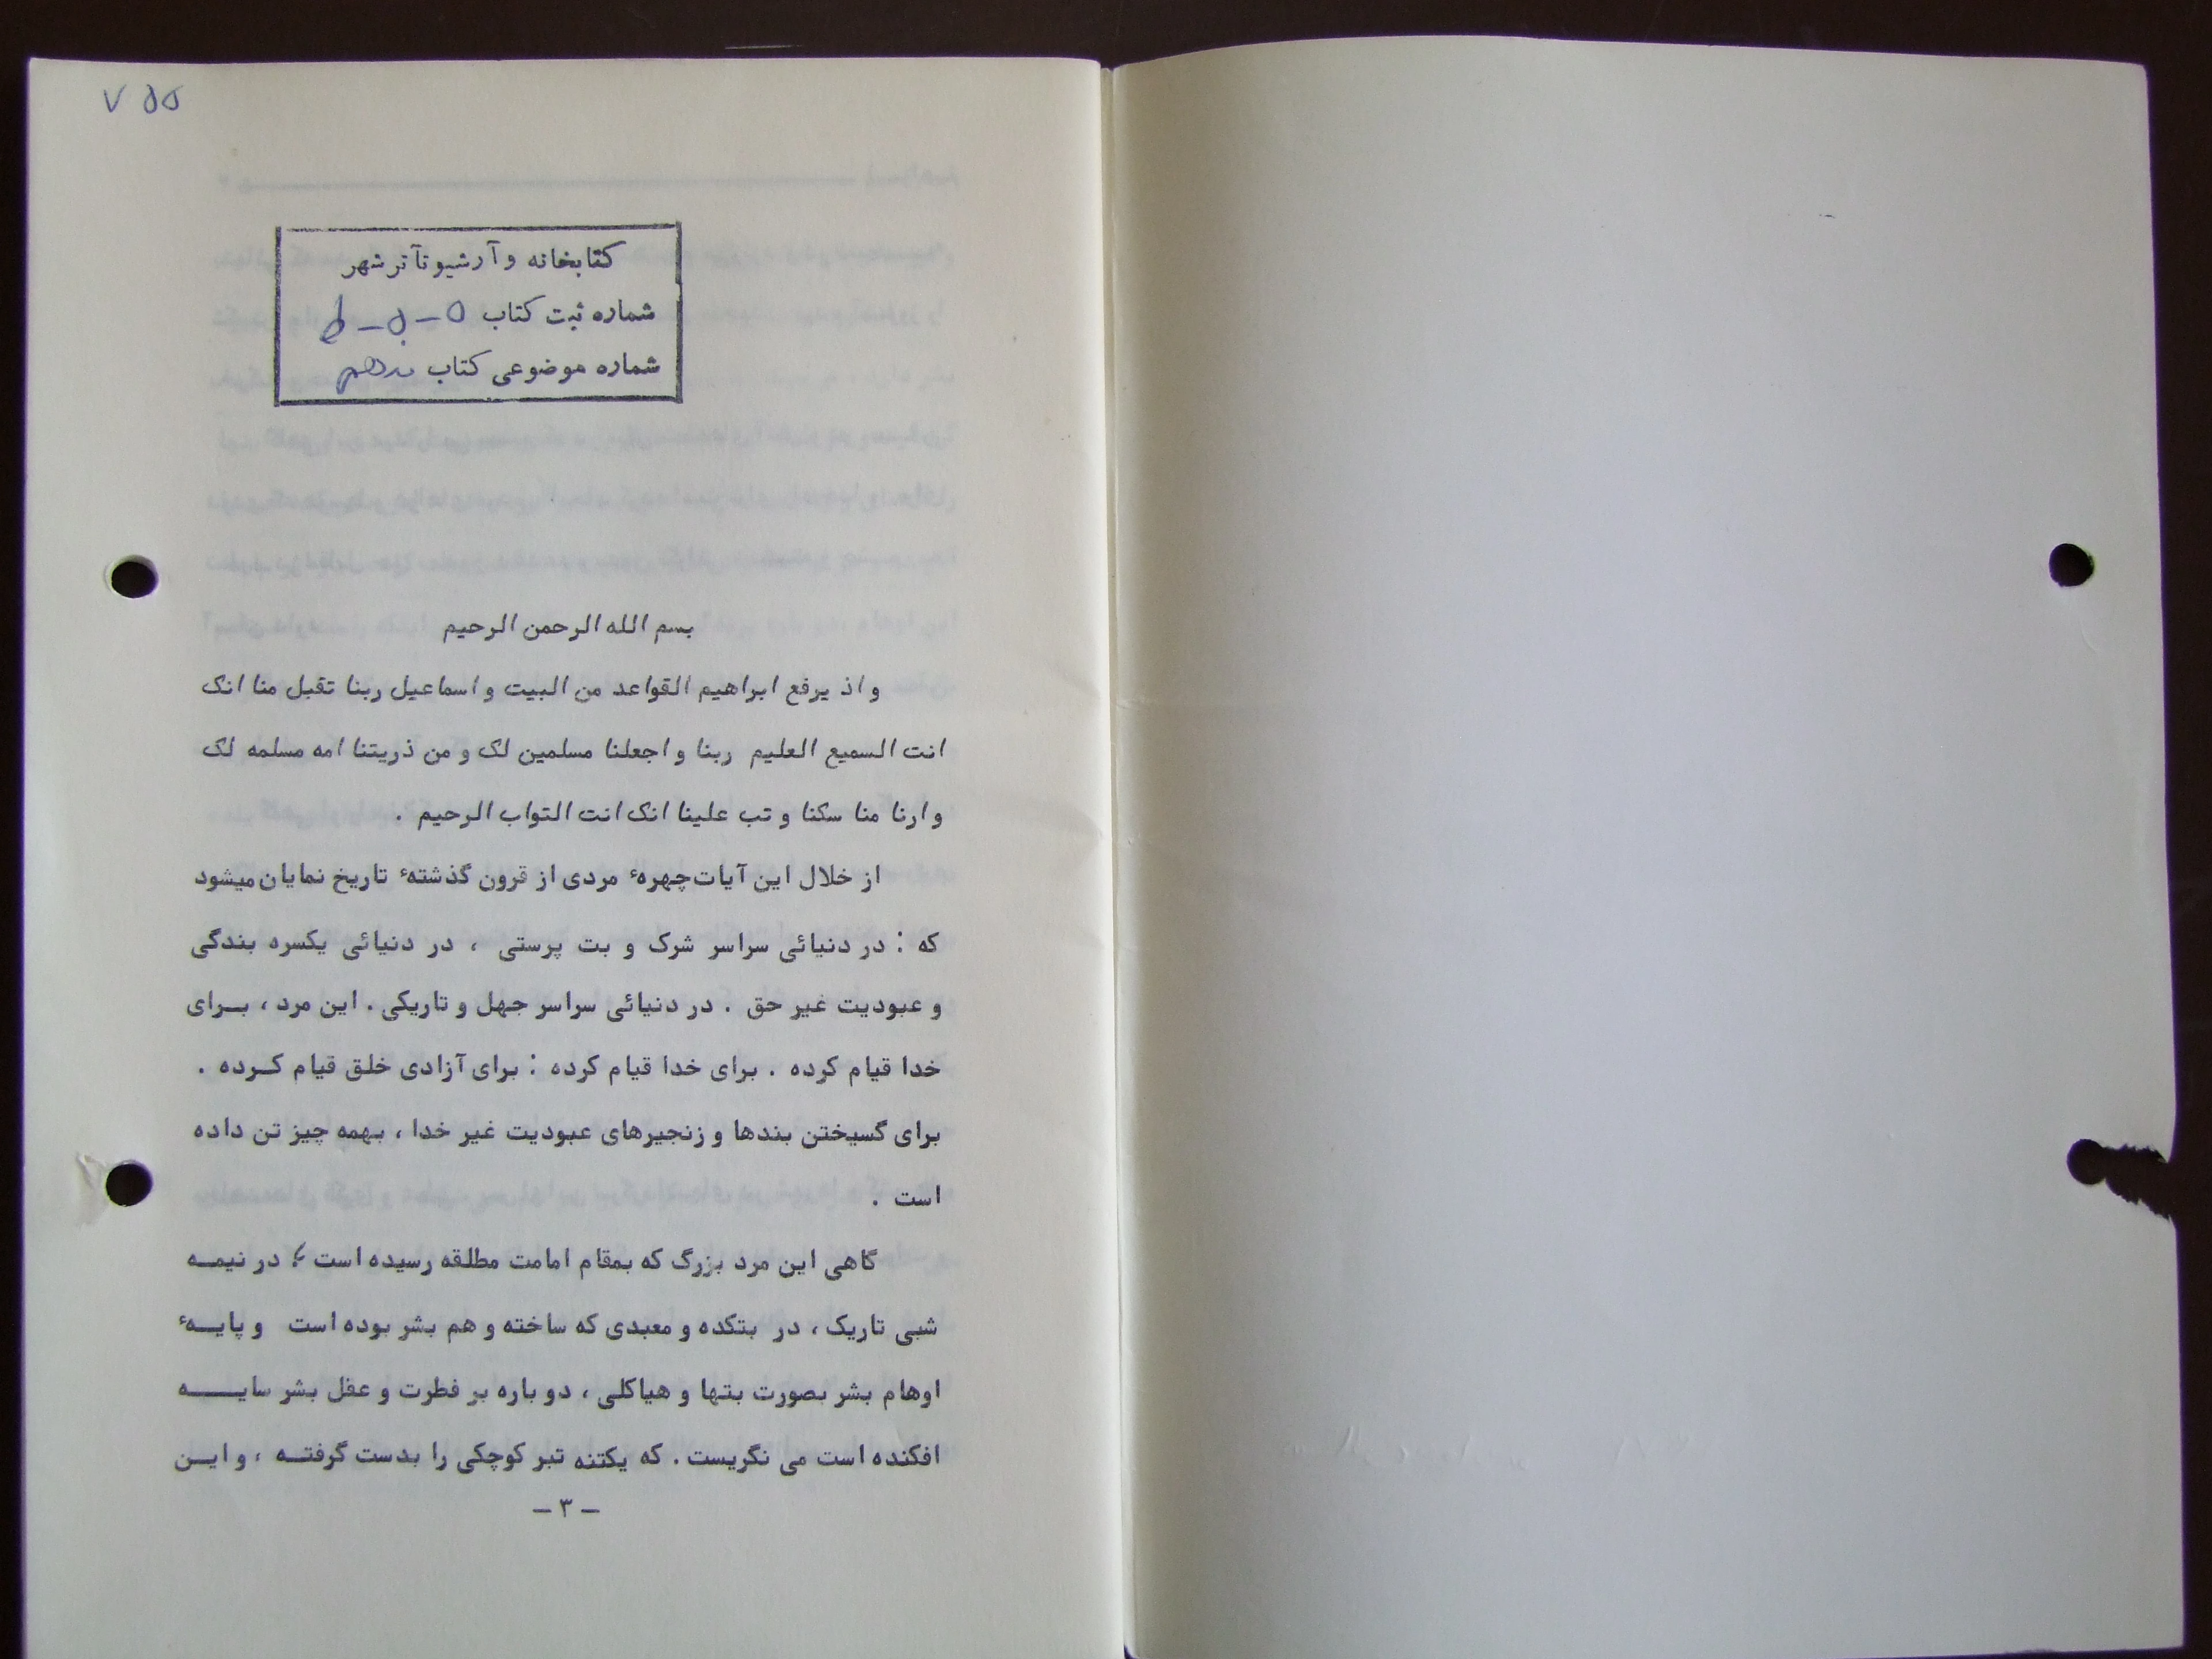 ۷۵۵
کتابخانه و آرشیو تآتر شهر
شماره ثبت کتاب
شماره موضوعی کتاب
بسم الله الرحمن الرحیم
و اذ یرفع ابراهیم القواعد من البیت و اسماعیل ربنا تقبل منا انک
انت السمیع العلیم ربنا و اجعلنا مسلمین لک و من ذریتنا امه مسلمه لک
و ارنا منا سکنا و تب علینا انک انت التواب الرحیم .
از خلال این آیات چهرهٔ مردی از قرون گذشتهٔ تاریخ نمایان میشود
که : در دنیائی سراسر شرک و بت پرستی ، در دنیائی یکسره بندگی
و عبودیت غیر حق . در دنیائی سراسر جهل و تاریکی . این مرد ، بـرای
خدا قیام کرده . برای خدا قیام کرده : برای آزادی خلق قیام کـرده .
برای گسیختن بندها و زنجیرهای عبودیت غیر خدا ، بهمه چیز تن داده
است .
گاهی این مرد بزرگ که بمقام امامت مطلقه رسیده است ؛ در نیمـه
شبی تاریک ، در بتکده و معبدی که ساخته و هم بشر بوده است و پایـهٔ
اوهام بشر بصورت بتها و هیاکلی ، دو باره بر فطرت و عقل بشر سایـه
افکنده است می نگریست . که یکتنه تبر کوچکی را بدست گرفتـه ، و ایـن
– ۳ –